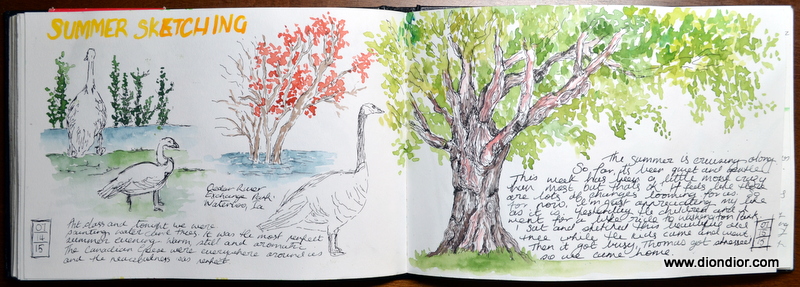 SUMMER SKETCHING
Cedar River
Exchange Park
Waterloo, Ia
07
14
15
Art class and tonight we were
painting water and trees. It was the most perfect
summer evening - warm, still and aromatic.
The Canadian Geese were everywhere around us
and the peacefulness was perfect
The summer is cruising along
So far, it's been quiet and
This week has been a little more crazy
than most but that's ok. It feels like there
are lots of changes looming for us.
for now, I'm just appreciating my life
as it is. Yesterday the children and I
went for a bike ride to Washington Park
I sat and sketched this beautiful old
tree while the kids came and went
Then it got busy, Thomas got stressed
so we came home.
07
15
www.diondior.com